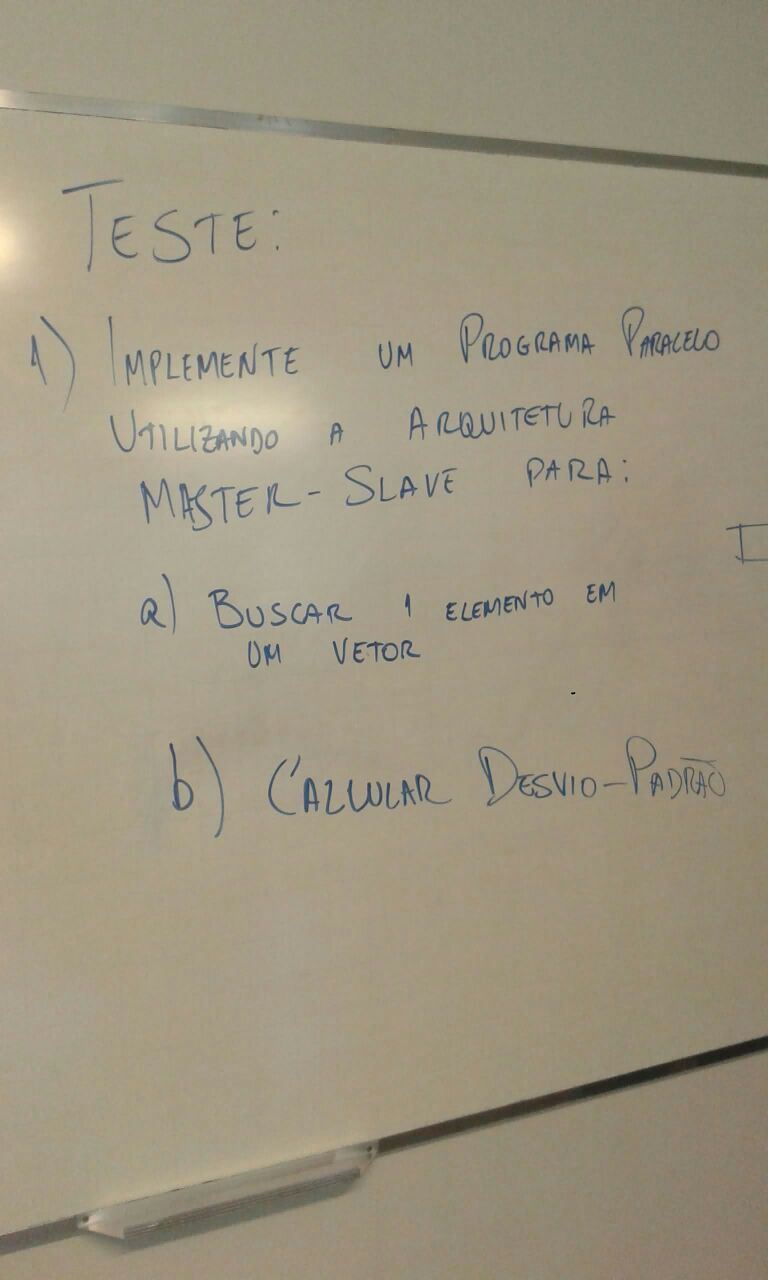 TESTE:
1) IMPLEMENTE UM PROGRAMA PARALELO
UTILIZANDO A ARQUITETURA
MASTER-SLAVE PARA:
a) BUSCAR 1 ELEMENTO EM
UM VETOR
b) CALCULAR DESVIO-PADRÃO